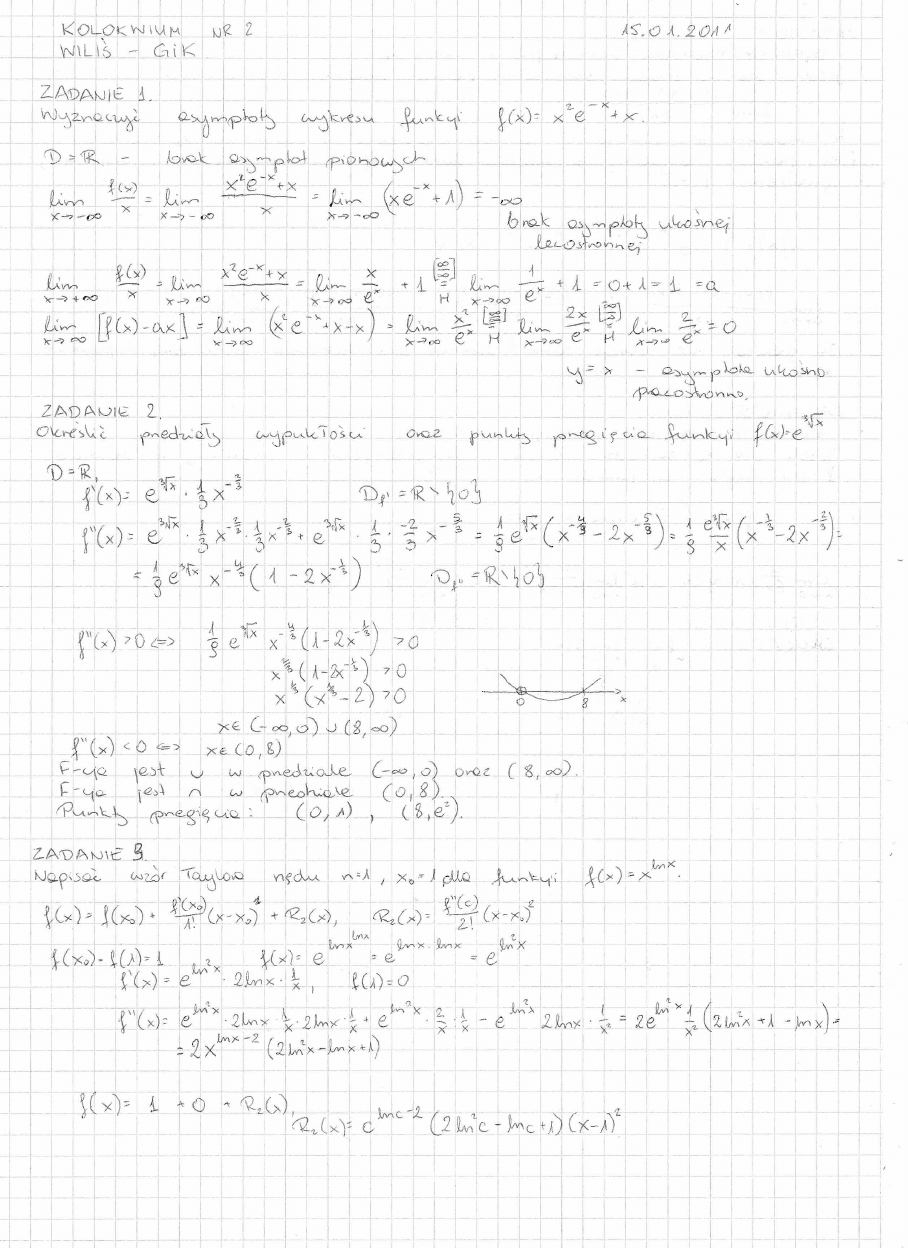 KOLOKWIUM NR 2 15.01.2011
WILIŚ - GiK
ZADANIE 1.
Wyznaczyć asymptoty wykresu funkcji f(x)= x²e^{-x}+x.
D=ℝ - brak asymptot pionowych
lim_{x→-∞} f(x)/x = lim_{x→-∞} (x²e^{-x}+x)/x = lim_{x→-∞} (xe^{-x}+1) = -∞
brak asymptoty ukośnej
lewostronnej
lim_{x→+∞} f(x)/x = lim_{x→∞} (x²e^{-x}+x)/x = lim_{x→∞} x/e^x + 1 [∞/∞] =_H lim_{x→∞} 1/e^x + 1 = 0+1 = 1 = a
lim_{x→∞} [f(x)-ax] = lim_{x→∞} (x²e^{-x}+x-x) = lim_{x→∞} x²/e^x [∞/∞] =_H lim_{x→∞} 2x/e^x [∞/∞] =_H lim_{x→∞} 2/e^x = 0
y=x - asymptota ukośna
prawostronna.
ZADANIE 2.
Określić przedziały wypukłości oraz punkty przegięcia funkcji f(x)=e^{∛x}
D=ℝ,
f'(x)= e^{∛x} · 1/3 x^{-2/3} D_{f'} = ℝ\{0}
f''(x)= e^{∛x} · 1/3 x^{-2/3} · 1/3 x^{-2/3} + e^{∛x} · 1/3 · -2/3 x^{-5/3} = 1/9 e^{∛x} (x^{-4/3} - 2x^{-5/3}) = 1/9 e^{∛x}/x (x^{-1/3} - 2x^{-2/3}) =
= 1/9 e^{∛x} x^{-4/3} (1 - 2x^{-1/3}) D_{f''} = ℝ\{0}
f''(x)>0 ⇔ 1/9 e^{∛x} x^{-4/3} (1-2x^{-1/3}) >0
(1-2x^{-1/3}) >0
x^{1/3} (x^{1/3}-2) >0
0 8 x
x∈(-∞,0)∪(8,∞)
f''(x)<0 ⇔ x∈(0,8)
F-cja jest ∪ w przedziale (-∞,0) oraz (8,∞).
F-cja jest ∩ w przedziale (0,8).
Punkty przegięcia: (0,1), (8,e²).
ZADANIE 3.
Napisać wzór Taylora rzędu n=1, x₀=1 dla funkcji f(x)=x^{lnx}.
f(x)= f(x₀) + f'(x₀)/1! (x-x₀)^1 + R₂(x), R₂(x)= f''(c)/2! (x-x₀)²
f(x₀)=f(1)=1 f(x)= e^{lnx^{lnx}} = e^{lnx·lnx} = e^{ln²x}
f'(x)= e^{ln²x} · 2lnx · 1/x, f(1)=0
f''(x)= e^{ln²x} · 2lnx · 1/x · 2lnx · 1/x + e^{ln²x} · 2/x · 1/x - e^{ln²x} 2lnx · 1/x² = 2e^{ln²x} 1/x² (2ln²x + 1 - lnx) =
= 2x^{lnx-2} (2ln²x-lnx+1)
f(x)= 1 + 0 + R₂(x),
R₂(x)= c^{lnc-2} (2ln²c - lnc+1)(x-1)²